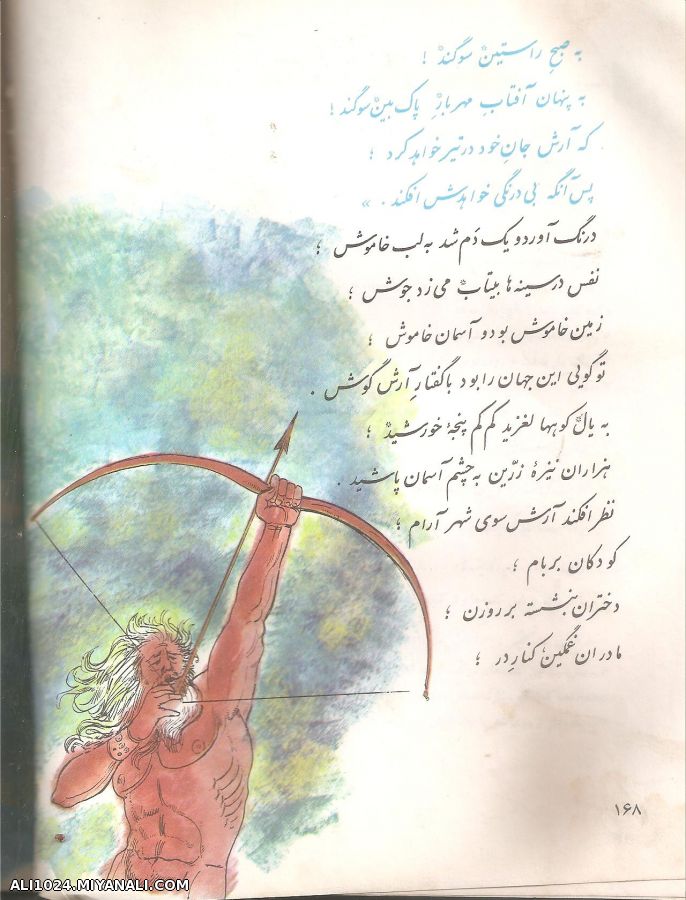 به صبحِ راستین سوگند !
به پنهان آفتابِ مهربارِ پاک‌بین سوگند !
که آرش جانِ خود در تیر خواهد کرد ؛
پس آنگه بی‌درنگی خواهدش افکند . »
درنگ آورد و یک دَم شد به لب خاموش ؛
نفس در سینه‌ها بیتاب می‌زد جوش ؛
زمین خاموش بود و آسمان خاموش ؛
تو گویی این جهان را بود با گفتارِ آرش گوش .
به یال کوهها لغزید کم کم پنجهٔ خورشید ؛
هزاران نیزهٔ زرّین به چشم آسمان پاشید .
نظر افکند آرش سوی شهر آرام ؛
کودکان بر بام ؛
دختران بنشسته بر روزن ؛
مادران غمگین کنارِ در ؛
۱۶۸
ALI1024.MIYANALI.COM